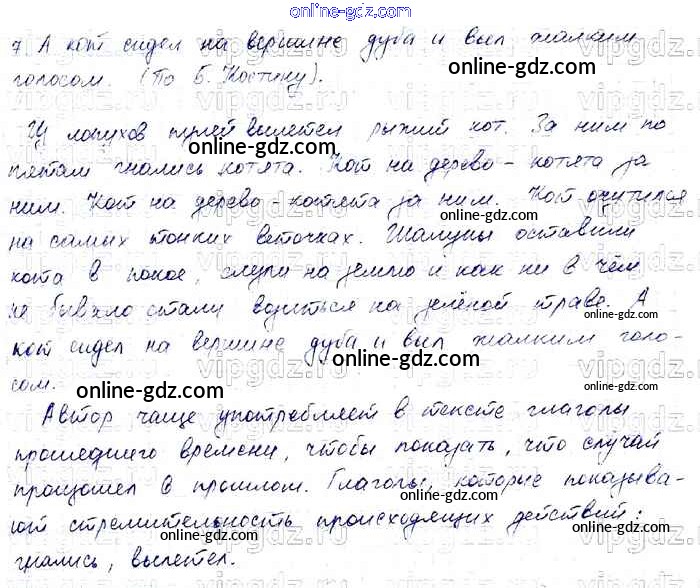 online-gdz.com
7. А кот сидел на вершине дуба и выл жалким
голосом. (По Б. Костину).
online-gdz.com
Из лопухов пулей вылетел рыжий кот. За ним по
пятам гнались котята. Кот на дерево - котята за
ним. Кот на дерево - котята за ним. Кот очутился
online-gdz.com
на самых тонких веточках. Шалуны оставили
online-gdz.com
кота в покое, слезли на землю и как ни в чём
не бывало стали возиться на зелёной траве. А
online-gdz.com
кот сидел на вершине дуба и выл жалким голо-
сом.
online-gdz.com
online-gdz.com
Автор чаще употребляет в тексте глаголы
прошедшего времени, чтобы показать, что случай
произошел в прошлом. Глаголы, которые показыва-
online-gdz.com
ют стремительность происходящих действий:
гнались, вылетел.
online-gdz.com